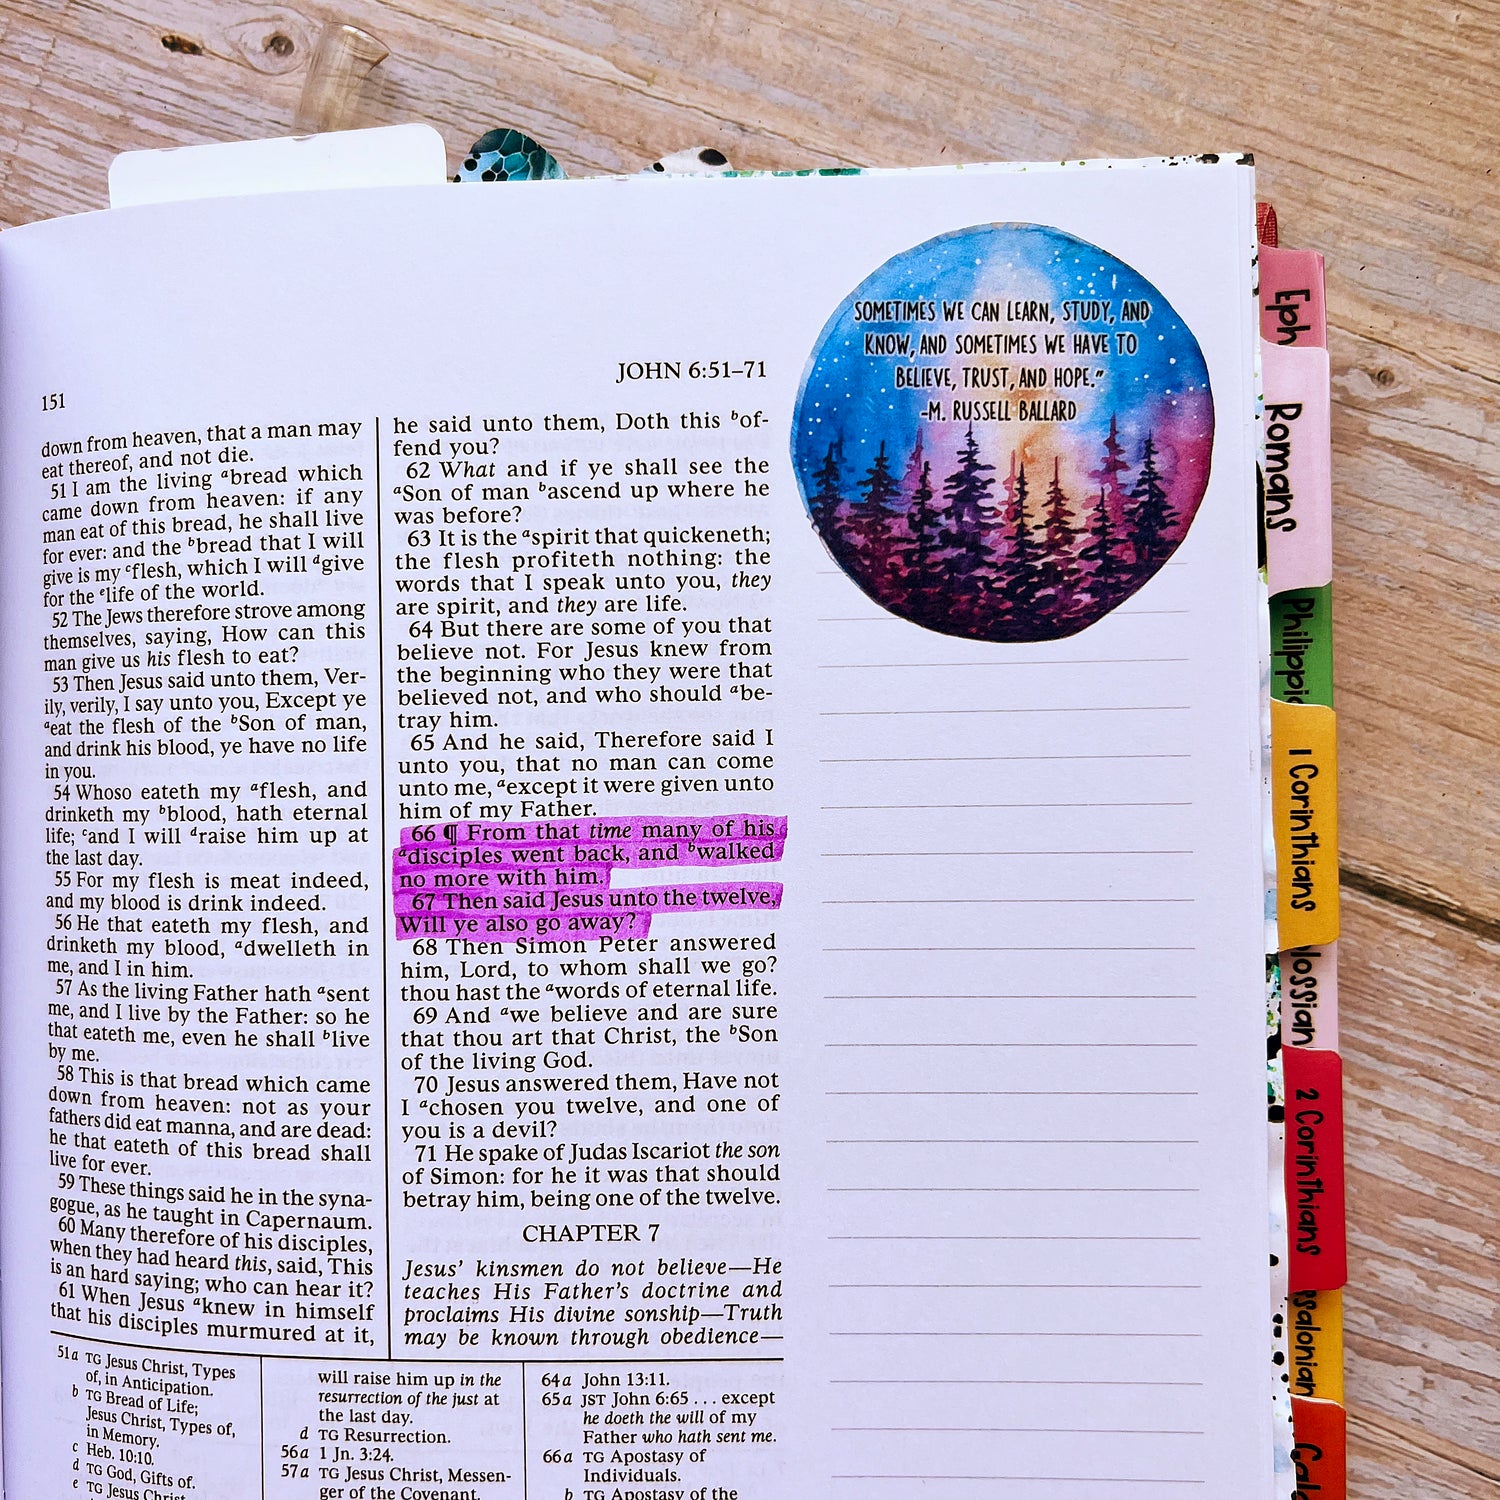 151
JOHN 6:51–71
down from heaven, that a man may
eat thereof, and not die.
51 I am the living ᵃbread which
came down from heaven: if any
man eat of this bread, he shall live
for ever: and the ᵇbread that I will
give is my ᶜflesh, which I will ᵈgive
for the ᵉlife of the world.
52 The Jews therefore strove among
themselves, saying, How can this
man give us his flesh to eat?
53 Then Jesus said unto them, Ver-
ily, verily, I say unto you, Except ye
ᵃeat the flesh of the ᵇSon of man,
and drink his blood, ye have no life
in you.
54 Whoso eateth my ᵃflesh, and
drinketh my ᵇblood, hath eternal
life; ᶜand I will ᵈraise him up at
the last day.
55 For my flesh is meat indeed,
and my blood is drink indeed.
56 He that eateth my flesh, and
drinketh my blood, ᵃdwelleth in
me, and I in him.
57 As the living Father hath ᵃsent
me, and I live by the Father: so he
that eateth me, even he shall ᵇlive
by me.
58 This is that bread which came
down from heaven: not as your
fathers did eat manna, and are dead:
he that eateth of this bread shall
live for ever.
59 These things said he in the syna-
gogue, as he taught in Capernaum.
60 Many therefore of his disciples,
when they had heard this, said, This
is an hard saying; who can hear it?
61 When Jesus ᵃknew in himself
that his disciples murmured at it,
he said unto them, Doth this ᵇof-
fend you?
62 What and if ye shall see the
ᵃSon of man ᵇascend up where he
was before?
63 It is the ᵃspirit that quickeneth;
the flesh profiteth nothing: the
words that I speak unto you, they
are spirit, and they are life.
64 But there are some of you that
believe not. For Jesus knew from
the beginning who they were that
believed not, and who should ᵃbe-
tray him.
65 And he said, Therefore said I
unto you, that no man can come
unto me, ᵃexcept it were given unto
him of my Father.
66 ¶ From that time many of his
ᵃdisciples went back, and ᵇwalked
no more with him.
67 Then said Jesus unto the twelve,
Will ye also go away?
68 Then Simon Peter answered
him, Lord, to whom shall we go?
thou hast the ᵃwords of eternal life.
69 And ᵃwe believe and are sure
that thou art that Christ, the ᵇSon
of the living God.
70 Jesus answered them, Have not
I ᵃchosen you twelve, and one of
you is a devil?
71 He spake of Judas Iscariot the son
of Simon: for he it was that should
betray him, being one of the twelve.
CHAPTER 7
Jesus' kinsmen do not believe—He
teaches His Father's doctrine and
proclaims His divine sonship—Truth
may be known through obedience—
51a TG Jesus Christ, Types
of, in Anticipation.
b TG Bread of Life;
Jesus Christ, Types of,
in Memory.
c Heb. 10:10.
d TG God, Gifts of.
e TG Jesus Christ
will raise him up in the
resurrection of the just at
the last day.
d TG Resurrection.
56a 1 Jn. 3:24.
57a TG Jesus Christ, Messen-
ger of the Covenant.
64a John 13:11.
65a JST John 6:65 . . . except
he doeth the will of my
Father who hath sent me.
66a TG Apostasy of
Individuals.
b TG Apostasy of the
SOMETIMES WE CAN LEARN, STUDY, AND
KNOW, AND SOMETIMES WE HAVE TO
BELIEVE, TRUST, AND HOPE."
-M. RUSSELL BALLARD
Eph
Romans
Philippic
1 Corinthians
lossian
2 Corinthians
salonian
Gala